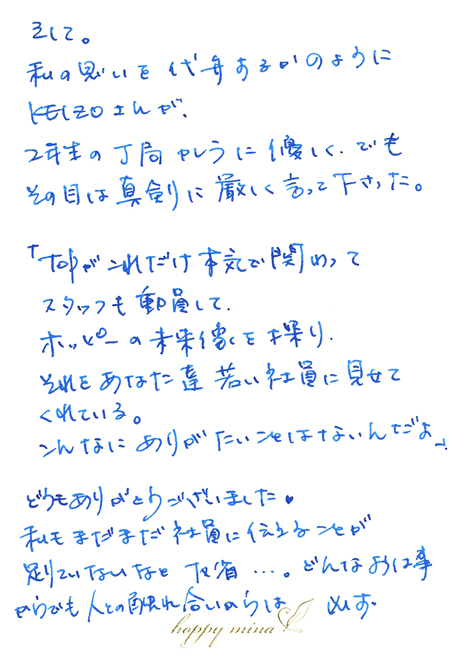 そして。
私の思いを代弁するかのように
KEIZOさんが、
2年生の丁局やしうに優しく、でも
その目は真剣に厳しく言って下さった。
「TOPがこれだけ本気で関わって
スタッフも動員して、
ホッピーの未来像を探り、
それをあなた達若い社員に見せて
くれている。
こんなにありがたいことはないんだよ」
どうもありがとうございました。
私もまだまだ社員に伝えることが
足りていないなと反省…。どんな事
からでも人との触れ合いからは 必ず
happy mina